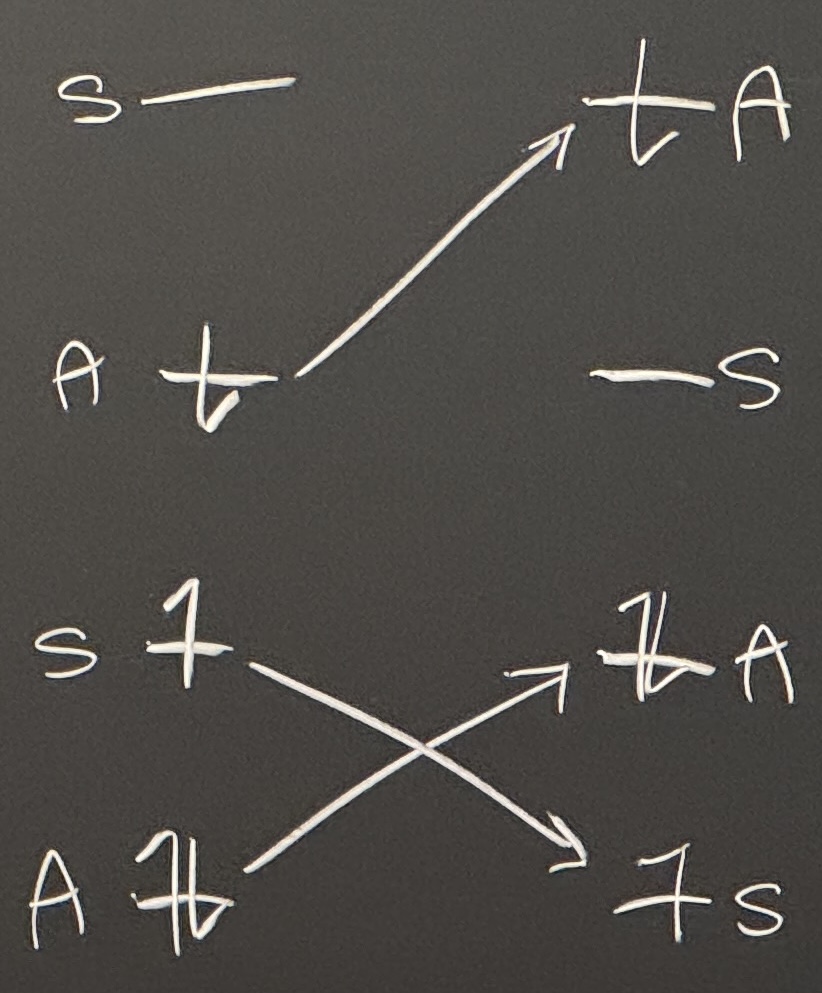 S A
A S
S A
A S